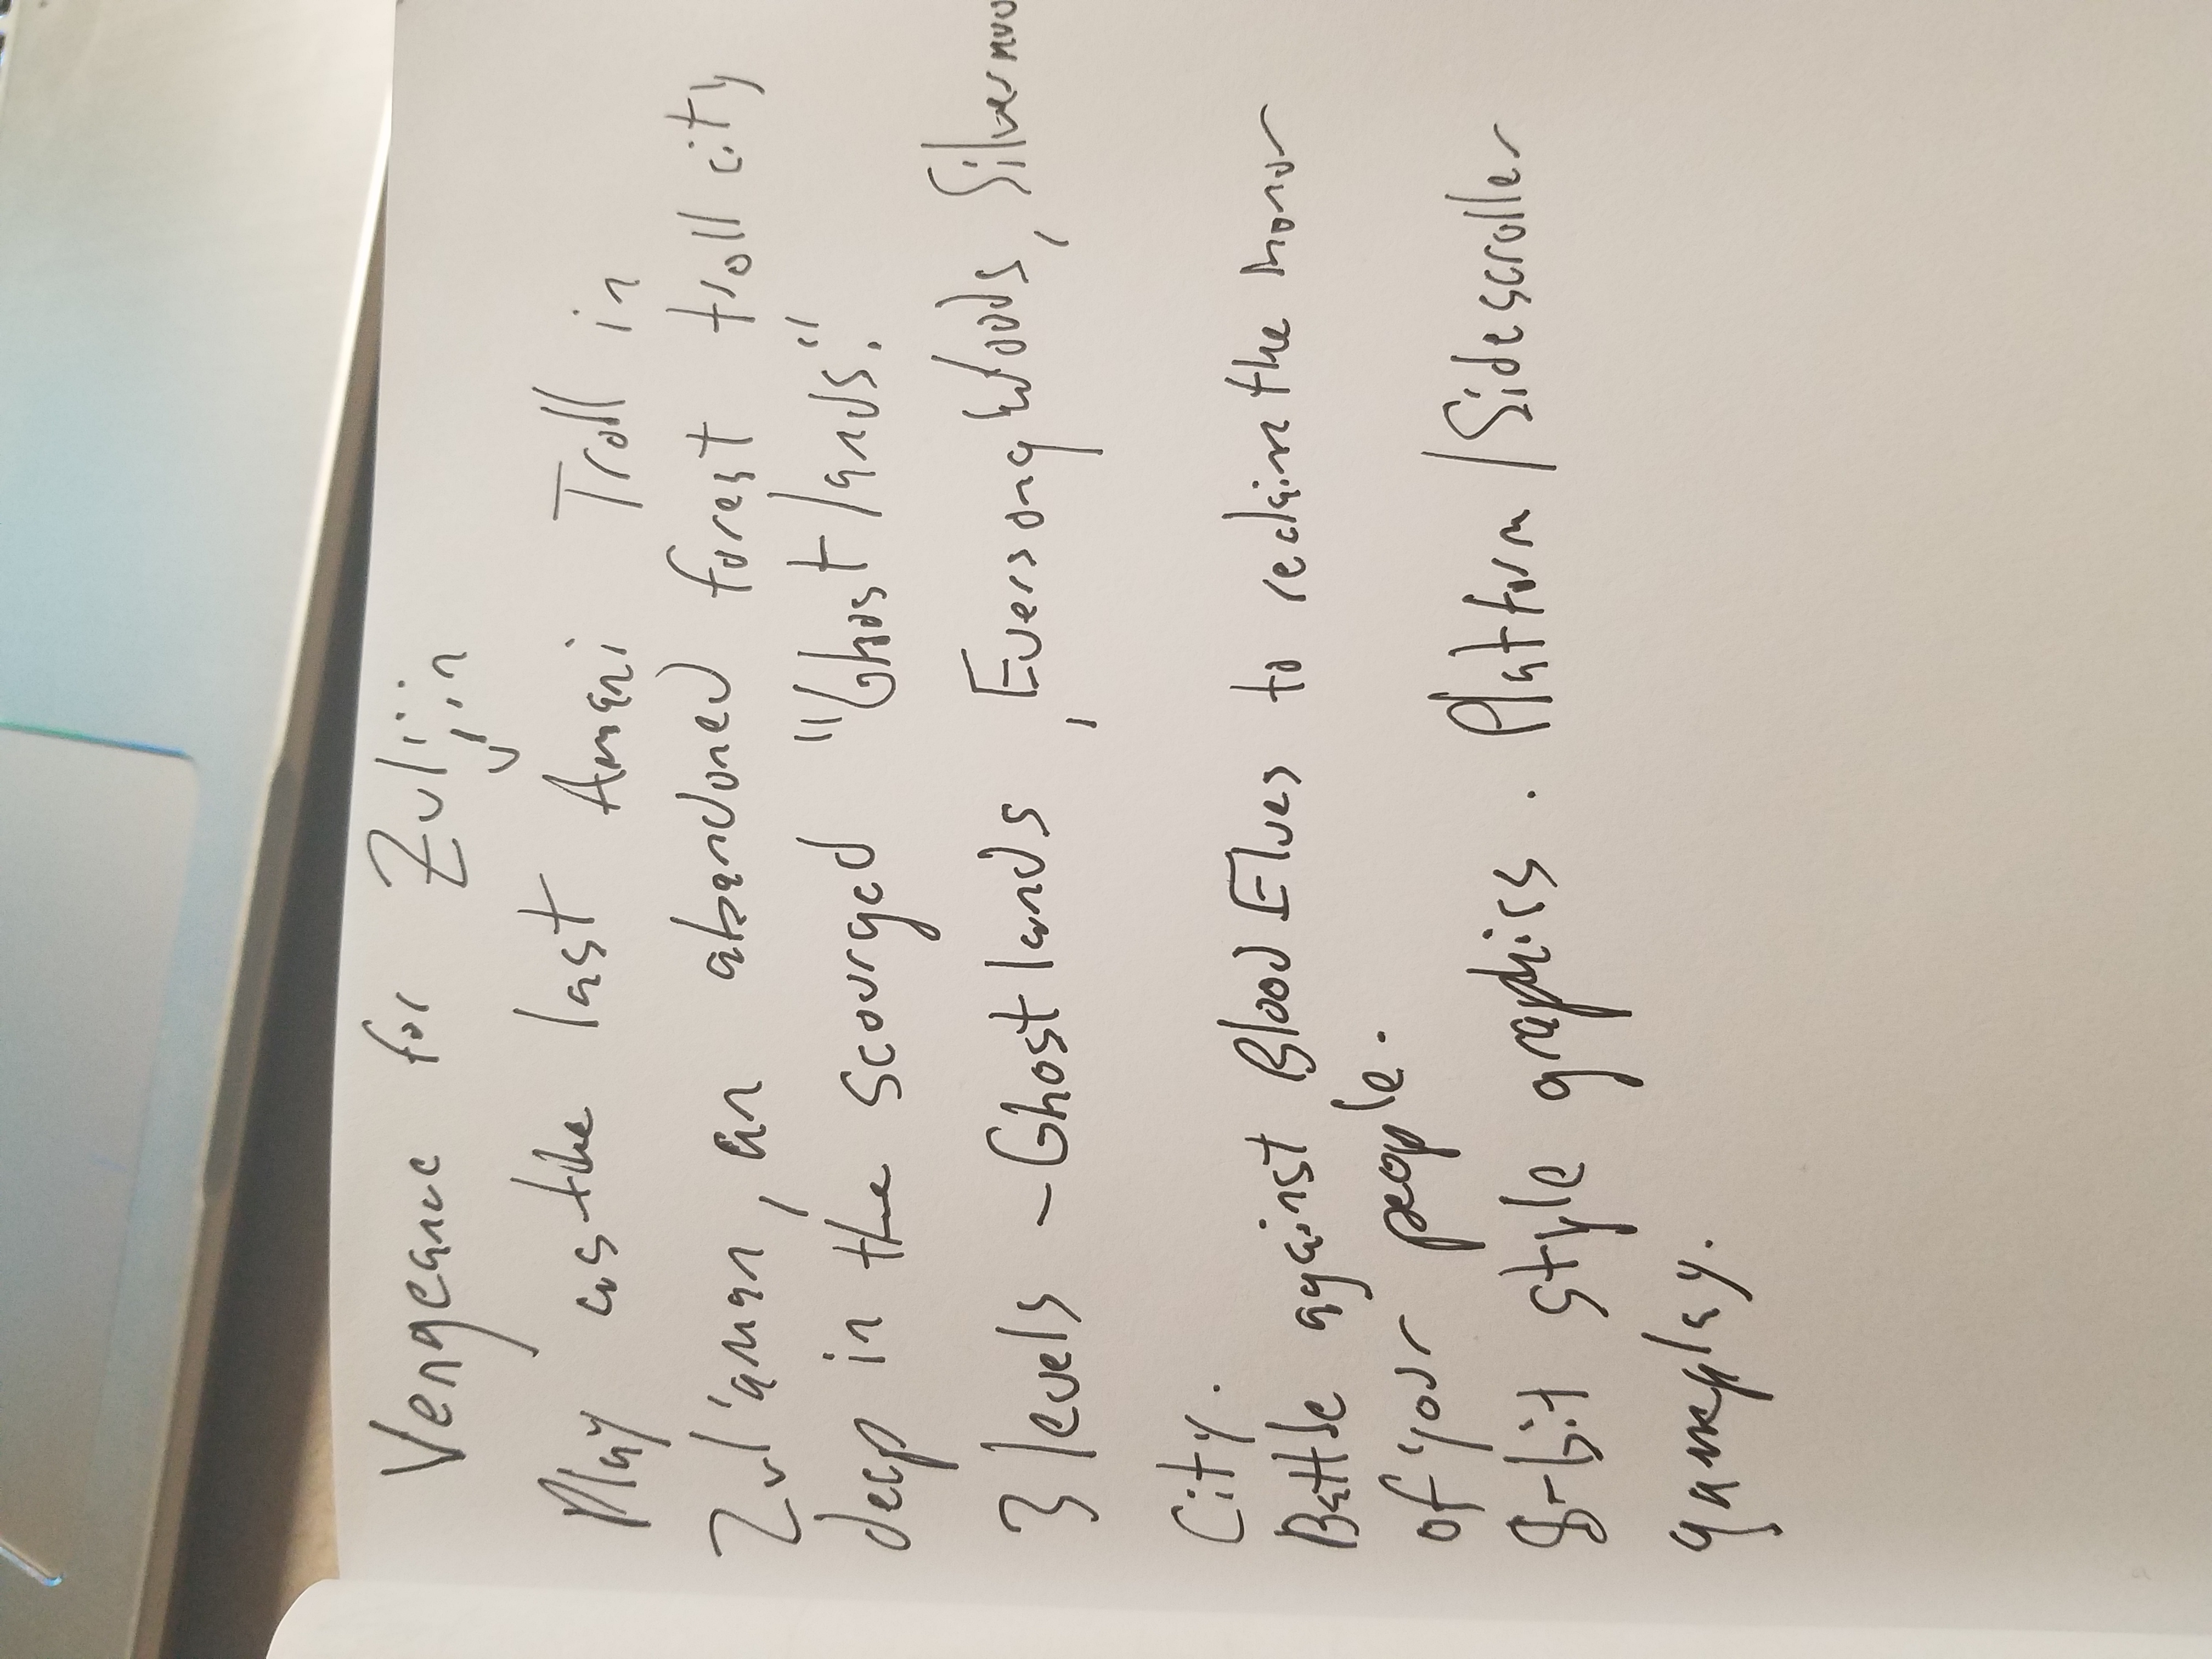 Vengeance for Zul'jin
Play as the last Amani Troll in
Zul'aman, an abandoned forest troll city
deep in the scourged "Ghostlands."
3 levels - Ghostlands, Eversong Woods, Silvermoo
City.
Battle against Blood Elves to reclaim the honor
of your people.
8-bit style graphics. Platform/Sidescroller
gameplay.